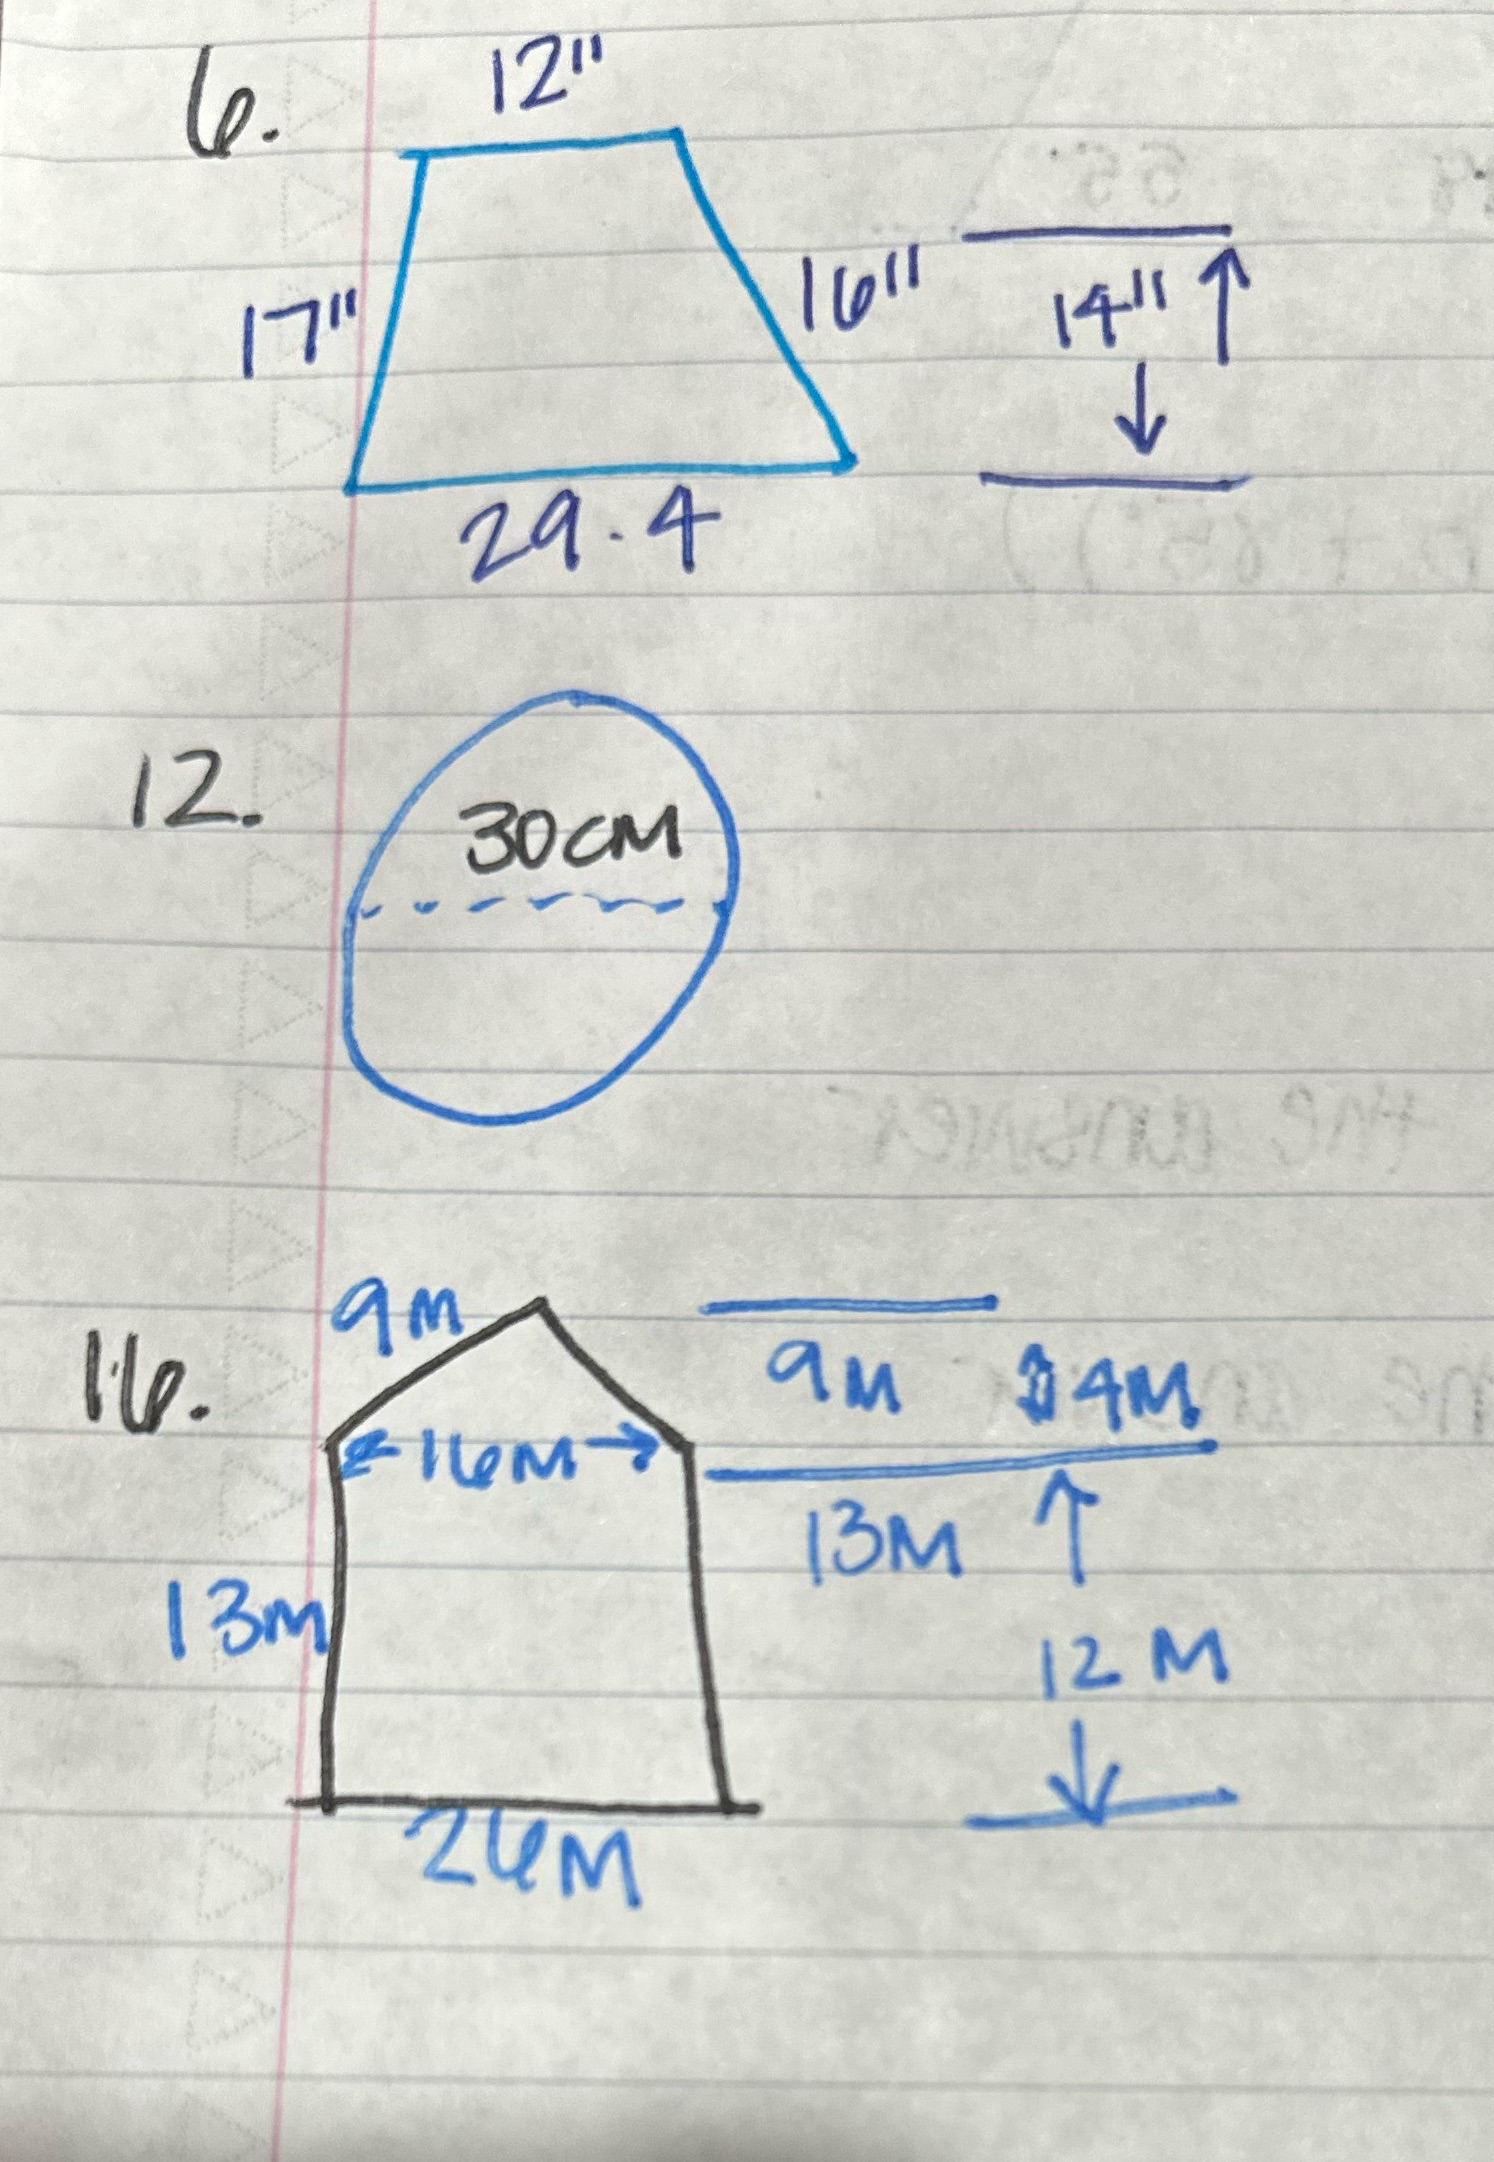 6.
12"
17"
16"
14"
29.4
12.
30cm
16.
9m
16m
9m
4m
13m
13m
12m
26m